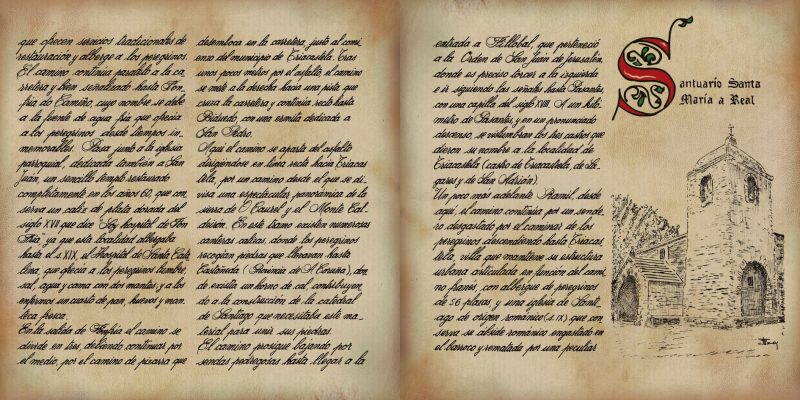 que ofrecen servicios tradicionales de
restauración y albergue a los peregrinos.
El camino continua paralelo a la ca
rretera y bien señalizado hasta Fon
fría do Camiño, cuyo nombre se debe
a la fuente de agua fría que ofrecía
a los peregrinos desde tiempos in-
memorables. Pasa junto a la iglesia
parroquial, dedicada también a San
Juan, un sencillo templo restaurado
completamente en los años 60, que con
serva un caliz de plata dorada del
siglo XVII que dice Soy hospital de Fon
Fría, ya que esta localidad albergaba
hasta el s. XIX, el Hospital de Santa Cata
lina, que ofrecía a los peregrinos lumbre,
sal, agua y cama con dos mantas; y a los
enfermos un cuarto de pan, huevos y man
teca fresca.
En la salida de Fonfría el camino se
divide en tres, debiendo continuar por
el medio, por el camino de pizarra que
desemboca en la carretera, justo al comi
enzo del municipio de Triacastela. Tras
unos pocos metros por el asfalto, el camino
se mete a la derecha hacia una pista que
cruza la carretera y continúa recto hasta
Biduedo con una ermita dedicada a
San Pedro.
Aquí el camino se aparta del asfalto
dirigiéndose en línea recta hacia Triacas
tela, por un camino desde el que se di-
visa una espectacular panorámica de la
sierra de O Caurel y el Monte Cal-
deirón. En este tramo existen numerosas
canteras calizas, donde los peregrinos
recogían piedras que llevaban hasta
Castañeda (Provincia de A Coruña), don
de existía un horno de cal, contribuyen
do a la construcción de la catedral
de Santiago que necesitaba este ma-
terial para unir sus piedras.
El camino prosigue bajando por
sendas pedregosas hasta llegar a la
entrada a Fillobal, que perteneció
a la Orden de San Juan de Jerusalén,
donde es preciso torcer a la izquierda
e ir siguiendo las señales hasta Pasantes,
con una capilla del siglo XVIII. A un kiló-
metro de Pasantes, y en un pronunciado
descenso, se vislumbran los tres castros que
dieron su nombre a la localidad de
Triacastela (castro de Triacastela, de La-
gares y de San Marión).
Un poco más adelante Ramil, desde
aquí, el camino continúa por un sende
ro desgastado por el caminar de los
peregrinos descendiendo hasta Triacas
tela, villa que mantiene su estructura
urbana articulada en función del cami
no francés, con albergue de peregrinos
de 56 plazas, y una iglesia de Santi
ago de origen románico (s. IX) que con
serva su ábside románico engastado en
el barroco y rematada por una peculiar
Santuario Santa
María a Real